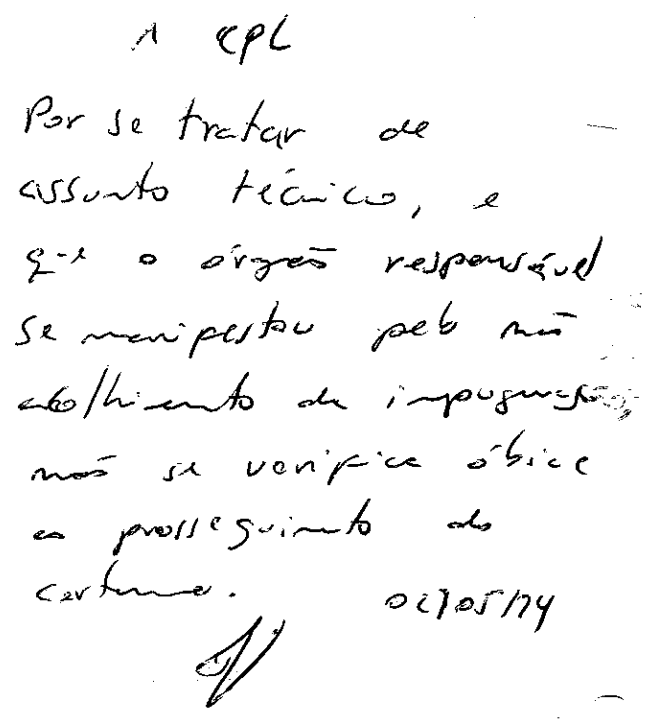 À CPL
Por se tratar de
assunto técnico, e
que o órgão responsável
se manifestou pelo não
acolhimento da impugnação,
não se verifica óbice
ao prosseguimento do
certame.
05/14